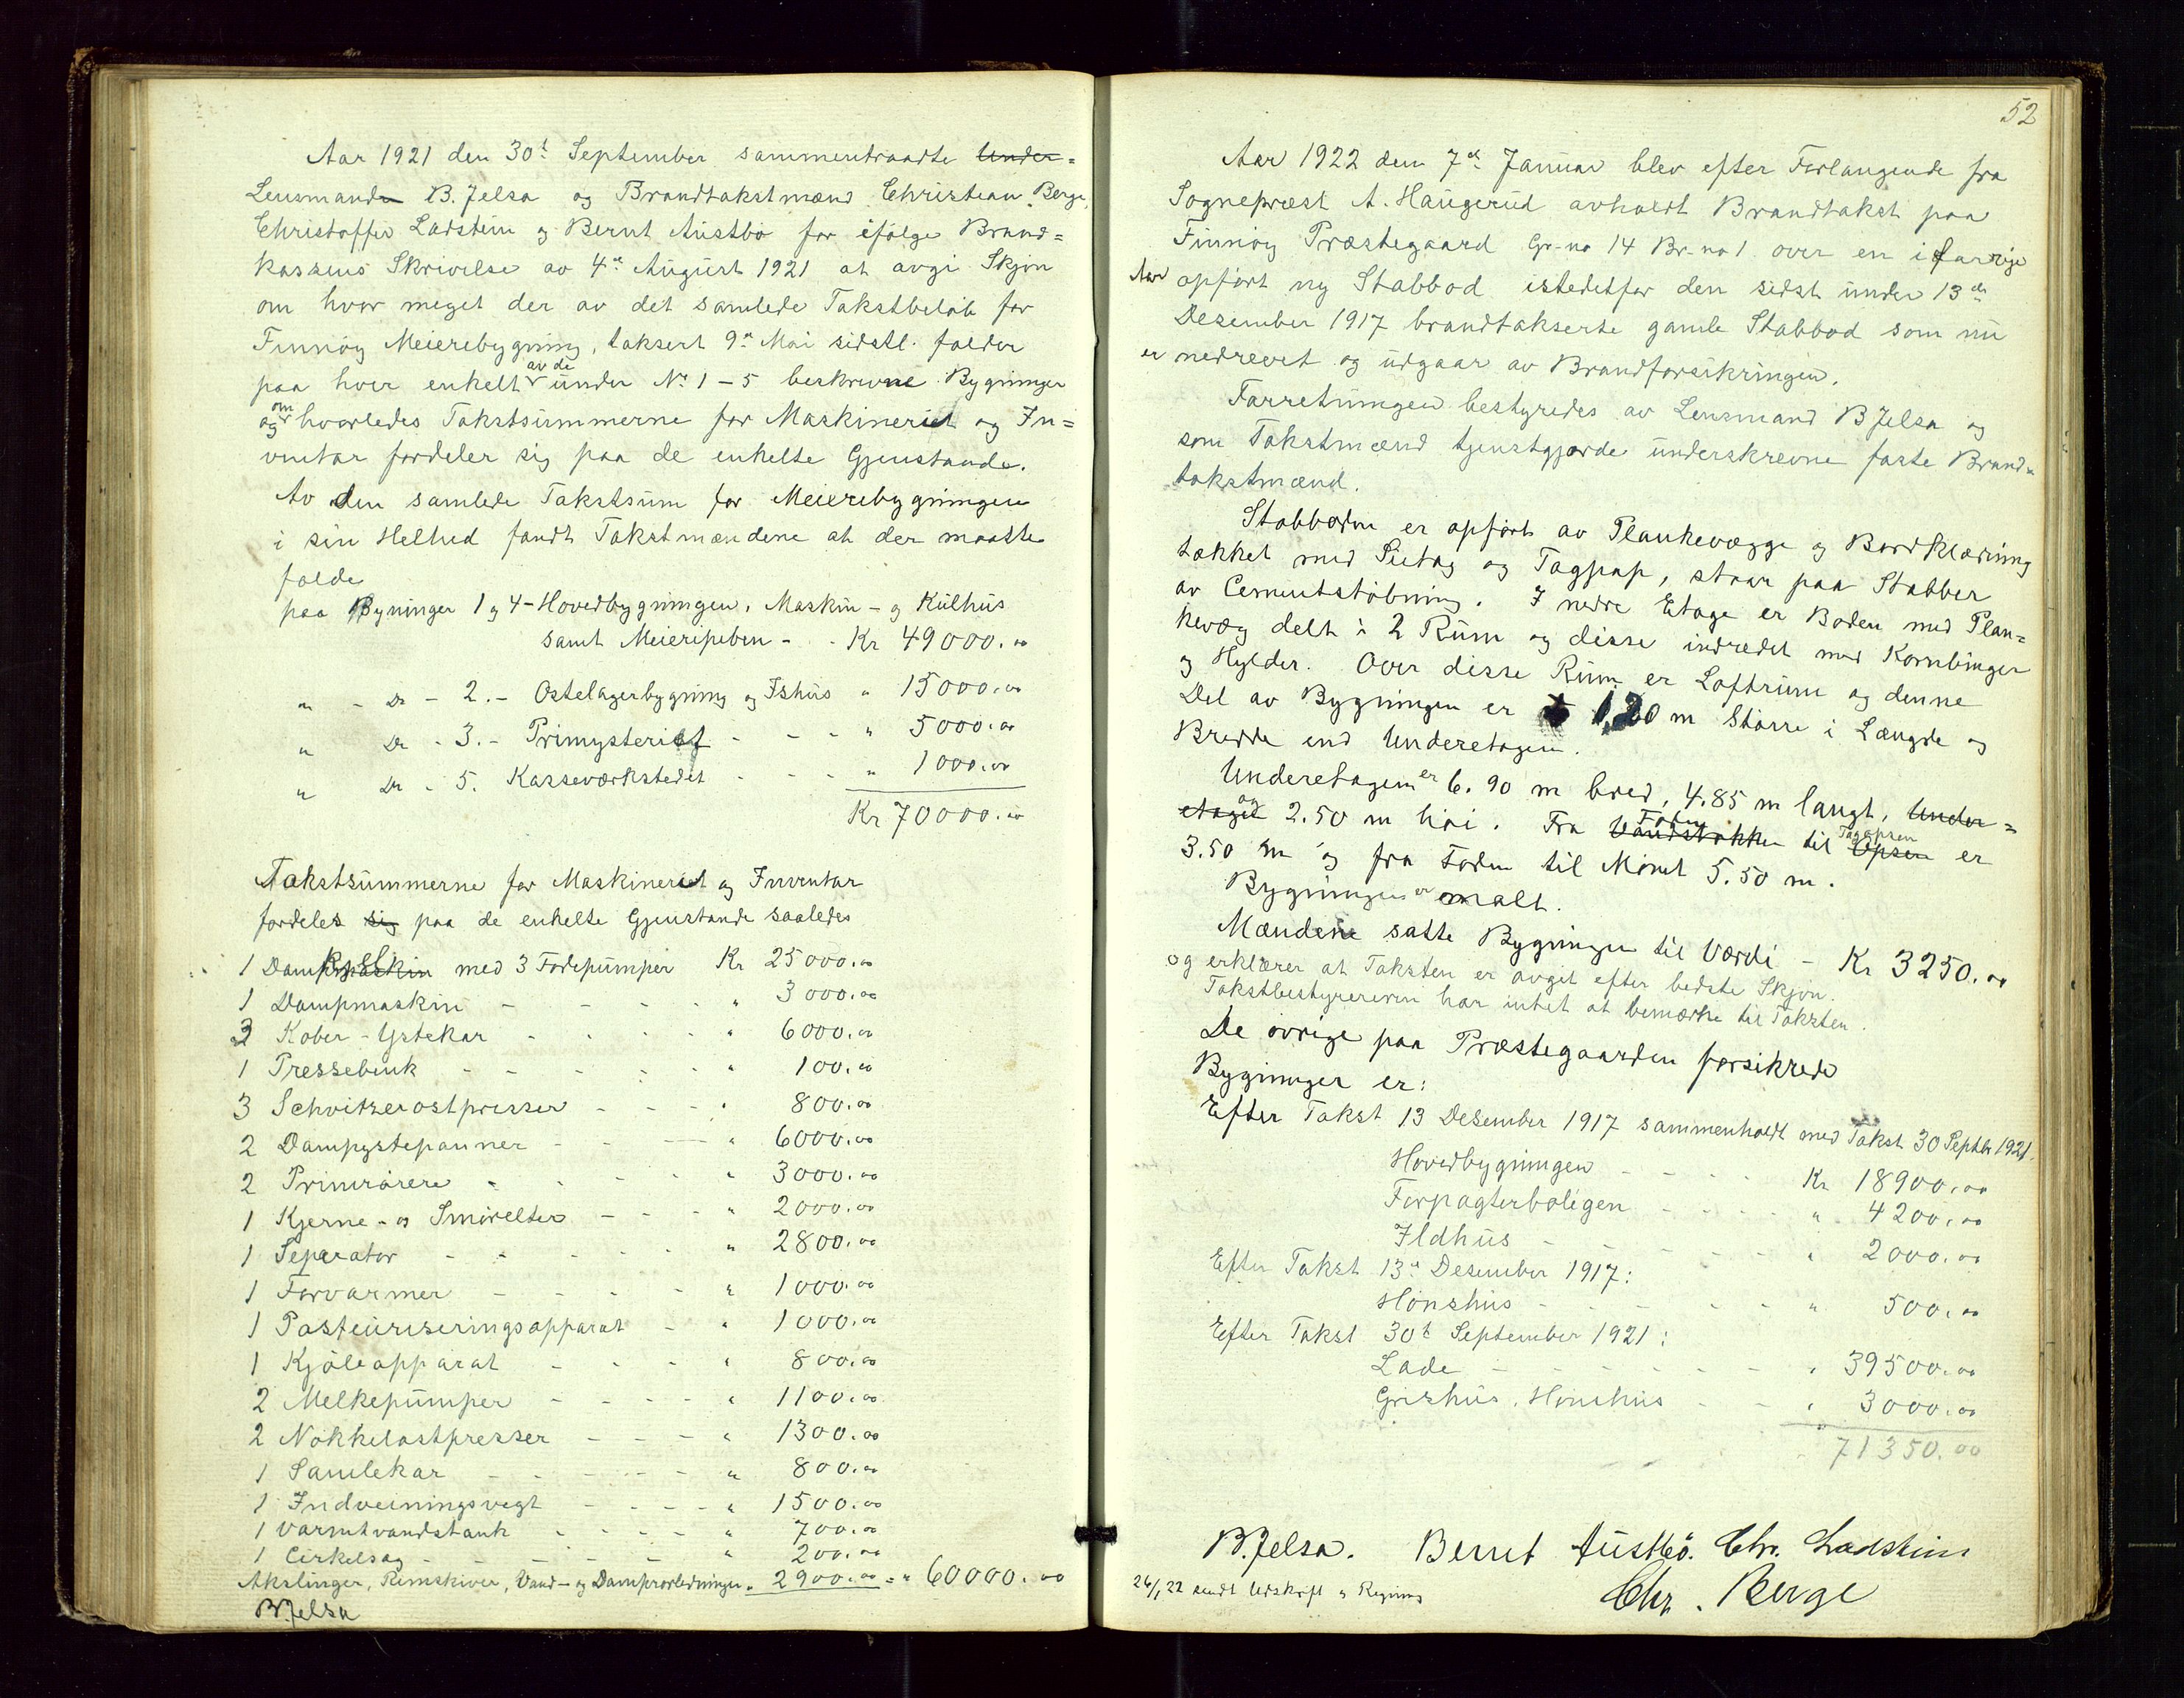 Aar 1921 den 30t September sammentraadte Under=
Lensmanden B. Jelsa og Brandtakstmænd Christian Berge,
Christoffer Ladstein og Bernt Austbö for ifölge Brand=
kassens Skrivelse av 4de August 1921 at avgi Skjön
om hvor meget der av det samlede Takstbelöb for
Finnöy Meieribygning, taksert 9de Mai sidstl. falder
paa hver enkelt av de under No 1-5 beskrevne Bygninger
og om hvorledes Takstsummerne for Maskineriet og In=
ventar fordeler sig paa de enkelte Gjenstande.
Av den samlede Takstsum for Meieribygningen
i sin Helhed fandt Takstmændene at der maatte
falde
paa Bygninger 1 og 4 - Hovedbygningen, Maskin- og Kulhus
samt Meieripiben - - Kr 49000.00
" - Do - 2. - Ostelagerbygning og Ishus " 15000.00
" Do - 3. - Primysteriet - - - " 5000.00
" Do - 5. Kasseværkstedet - - - " 1000.00
Kr 70000.00
Takstsummerne for Maskineriet og Inventar
fordeles sig paa de enkelte Gjenstande saaledes
1 Dampkjel med 3 Födepumper Kr 25000.00
1 Dampmaskin - - - - " 3000.00
3 Kober-Ystekar - - - - " 6000.00
1 Pressebenk - - - - - " 100.00
3 Schvitzerostpresser - - - " 800.00
2 Dampystepanner - - - " 6000.00
2 Primrörere - - - - " 3000.00
1 Kjerne- og Smörelter - - - " 2000.00
1 Seperator - - - - - " 2800.00
1 Forvarmer - - - - " 1000.00
1 Pasteuriseringsapparat - " 1000.00
1 Kjöleapparat - - - - " 800.00
2 Melkepumper - - - - " 1100.00
2 Nökkelostpresser - - - " 1300.00
1 Samlekar - - - - - " 800.00
1 Indveiningsvegt - - - - " 1500.00
1 Varmtvandstank - - - - " 700.00
1 Cirkelsag - - - - - " 200.00
Akslinger, Remskiver, Vand- og Dampvorledninger " 2900.00 = " 60000.00
B Jelsa
52
Aar 1922 den 7de Januar blev efter Forlangende fra
Sogneprest A. Haugerud avholdt Brandtakst paa
Finnöy Præstegaard Gr-no 14 Br-no 1 over en i forrige
Aar opfört ny Stabbod istedetfor den sidst under 13de
Desember 1917 brandtakserte gamle Stabbod som nu
er nedrevet og udgaar av Brandforsikringen.
Forretningen bestyredes av Lensmand B Jelsa og
som Takstmænd tjenstgjorde underskrevne faste Brand=
takstmænd.
Stabboden er opfört av Plankevægge og Bordklædning
tækket med Sutag og Tagpap, staar paa Stabber
av Cementstöbning. I nedre Etage er Boden med Plan=
kevæg delt i 2 Rum og disse indredet med Kornbinger
og Hylder. Over disse Rum er Loftrum og denne
Del av Bygningen er 1,20 m större i Længde og
Bredde end Underetagen.
Underetagen er 6.90 m bred, 4.85 m langt, Under=
etaget og 2.50 m höi. Fra Vandstokken Foden til Opsen Tagopsen er
3.50 m og fra Foden til Mönet 5.50 m.
Bygningen er malt.
Mændene satte Bygningen til Værdi - Kr 3250.00
og erklærer at Taksten er avgit efter bedste Skjön.
Takstbestyrereren har intet at bemærke til Taksten.
De övrige paa Præstegaarden forsikrede
Bygninger er:
Efter Takst 13 Desember 1917 sammenholdt med Takst 30 Septbr 1921.
Hovedbygningen - - - - Kr 18900.00
Forpagterboligen - - - - " 4200.00
Ildhus - - - - - - " 2000.00
Efter Takst 13de Desember 1917:
Hönshus - - - - - " 500.00
Efter Takst 30t September 1921:
Lade - - - - - - " 39500.00
Grishus, Hönshus - - " 3000.00
71350.00
B. Jelsa. Bernt Austbö. Chr. Ladstein
Chr. Berge
26/1 22 sendt Udskrift